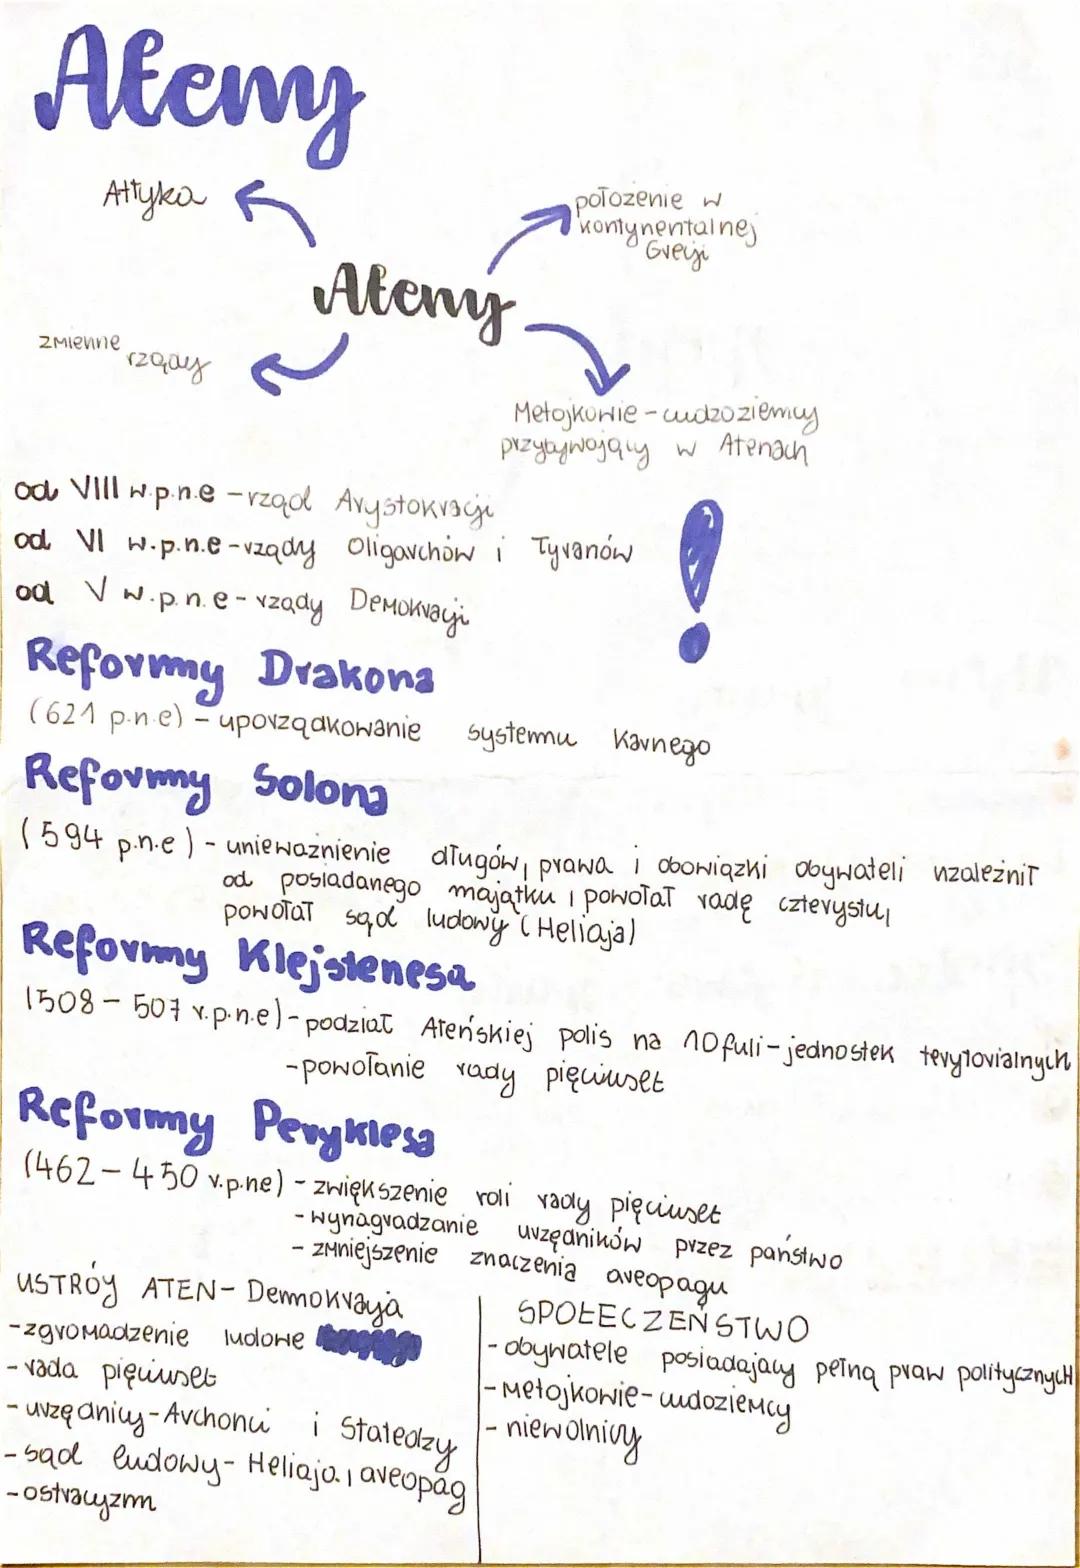 Ateny
Attyka
położenie w
kontynentalnej
Grecji
Ateny
zmienne rządy
Metojkowie - cudzoziemcy
przybywojący w Atenach
od VIII w.p.n.e - rząd Arystokracji
od VI w.p.n.e - rządy Oligarchów i Tyranów
od V w.p.n.e - rządy Demokracji
!
Reformy Drakona
(621 p.n.e) - uporządkowanie systemu karnego
Reformy Solona
(594 p.n.e) - unieważnienie długów, prawa i obowiązki obywateli uzależnił
od posiadanego majątku, powołał radę czterystu,
powołał sąd ludowy (Heliaja)
Reformy Klejstenesa
(508 - 507 r.p.n.e) - podział Ateńskiej polis na 10 fuli - jednostek terytorialnych
- powołanie rady pięciuset
Reformy Peryklesa
(462 - 450 r.p.ne) - zwiększenie roli rady pięciuset
- wynagradzanie urzędników przez państwo
- zmniejszenie znaczenia areopagu
USTRÓJ ATEN - Demokracja
- zgromadzenie ludowe
- rada pięciuset
- urzędnicy - Archonci i Statedzy
- sąd ludowy - Heliaja, areopag
- ostracyzm
SPOŁECZEŃSTWO
- obywatele posiadający pełną praw politycznych
- Metojkowie - cudoziemcy
- niewolnicy